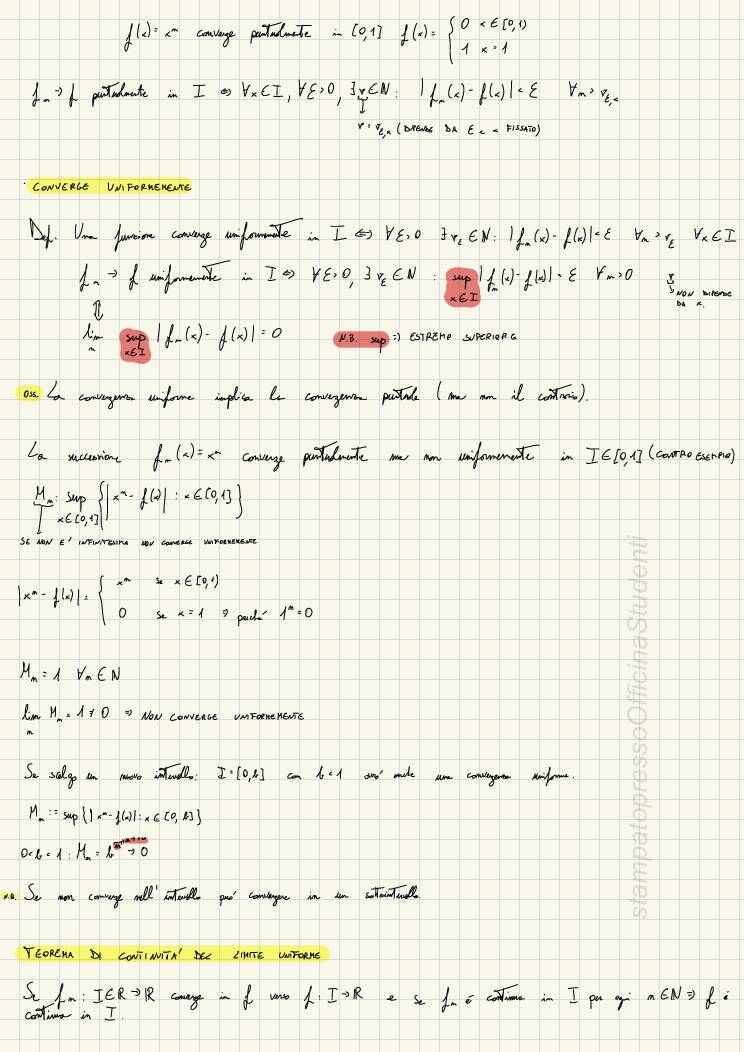 f(x) = xⁿ converge puntualmente in [0,1] f(x) = { 0 x∈[0,1)
1 x=1
fₙ → f puntualmente in I ⇔ ∀x∈I, ∀ε>0, ∃ν∈N: |fₙ(x) - f(x)| < ε ∀n > ν_ε,x
ν = ν_ε,x (DIPENDE DA ε e x FISSATO)
CONVERGE UNIFORMEMENTE
Def. Una funzione converge uniformemente in I ⇔ ∀ε>0 ∃ν_ε∈N: |fₙ(x) - f(x)| < ε ∀n > ν_ε ∀x∈I
fₙ → f uniformemente in I ⇔ ∀ε>0, ∃ν_ε∈N : sup x∈I |fₙ(x) - f(x)| < ε ∀n>0 ν
NON DIPENDE
DA x.
⇕
lim n sup x∈I |fₙ(x) - f(x)| = 0 N.B. sup => ESTREMO SUPERIORE
Oss. La convergenza uniforme implica la convergenza puntuale (ma non il contrario).
La successione fₙ(x) = xⁿ converge puntualmente ma non uniformemente in I∈[0,1] (CONTROESEMPIO)
Mₙ: sup x∈[0,1] { |xⁿ - f(x)| : x∈[0,1] }
SE NON E' INFINITESIMA NON CONVERGE UNIFORMEMENTE
|xⁿ - f(x)| = { xⁿ se x∈[0,1)
0 se x = 1 => perché 1ⁿ=0
Mₙ = 1 ∀n∈N
lim n Mₙ = 1 ≠ 0 => NON CONVERGE UNIFORMEMENTE
Se scelgo un nuovo intervallo: I = [0,b] con b<1 avró anche una convergenza uniforme.
Mₙ := sup { |xⁿ - f(x)| : x∈[0,b] }
0<b<1 : Mₙ = bⁿ → 0
N.B. Se non converge nell'intervallo puó convergere in un sottointervallo.
TEOREMA DI CONTINUITA' DEL LIMITE UNIFORME
Se fₙ: I∈R → R converge in f verso f: I→R e se fₙ é continua in I per ogni n∈N => f é
continua in I.
stampatopressoOfficinaStudenti